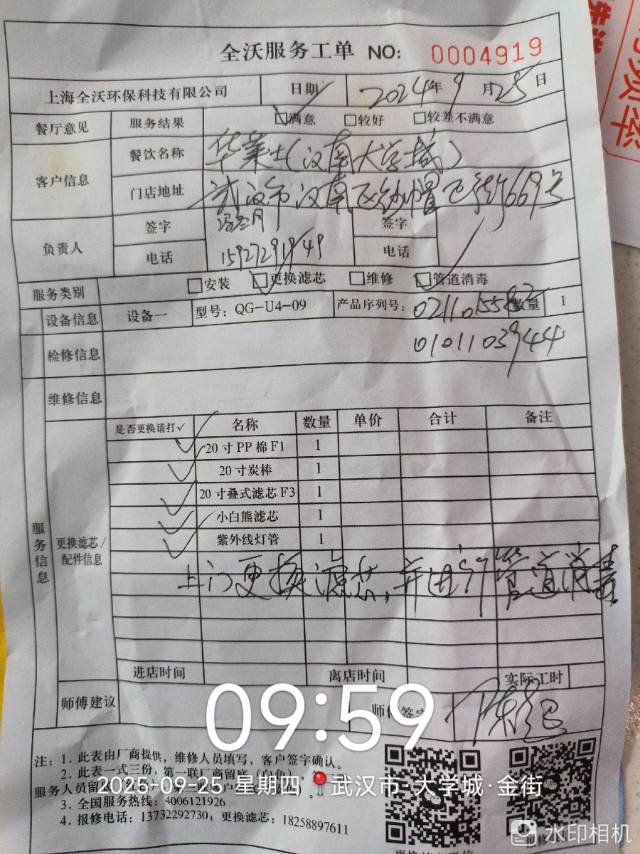 全沃服务工单 NO: 0004919
上海全沃环保科技有限公司 日期 2024年9月25日
餐厅意见 服务结果 满意 较好 较差不满意
客户信息 餐饮名称 华莱士(汉南大学城)
门店地址 武汉市汉南区纱帽正街669号
负责人 签字 签字
电话 15927291949 电话
服务类别 安装 更换滤芯 维修 管道消毒
设备信息 设备一 型号:QG-U4-09 产品序列号: 数量 1
检修信息 0101103944
维修信息
服务信息
是否更换请打✓ 名称 数量 单价 合计 备注
✓ 20寸PP棉F1 1
✓ 20寸炭棒 1
✓ 20寸叠式滤芯F3 1
✓ 小白熊滤芯 1
✓ 紫外线灯管 1
更换滤芯/
配件信息
上门更换滤芯,并进行管道消毒
进店时间 离店时间 实际工时
师傅建议 师傅签字
09:59
2025-09-25 星期四 武汉市·大学城·金街
注:1. 此表由厂商提供,维修人员填写,客户签字确认。
2. 此表一式三份,第一联厂商留底
服务人员留
3. 全国服务热线:4006121926
4. 报修电话:13732292730,更换滤芯:18258897611
水印相机